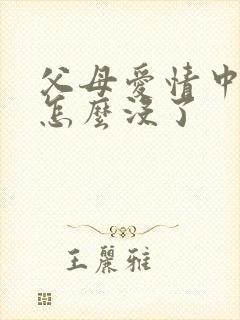 父母愛情中
怎麼沒了
王麗雅